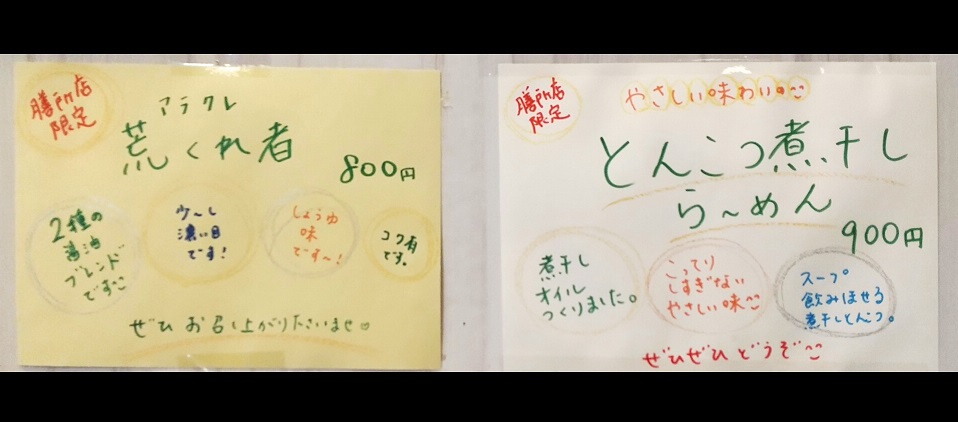 膳所店
限定
アラクレ
荒くれ者
800円
2種の
醤油
ブレンド
です
少〜し
濃い目
です!
しょうゆ
味
です〜!
コク有
です。
ぜひ お召し上がりくださいませ♡
膳所店
限定
やさしい味わいの
とんこつ煮干し
ら〜めん
900円
煮干し
オイル
つくりました。
こってり
しすぎない
やさしい味
スープ
飲みほせる
煮干しとんこつ。
ぜひぜひ どうぞ